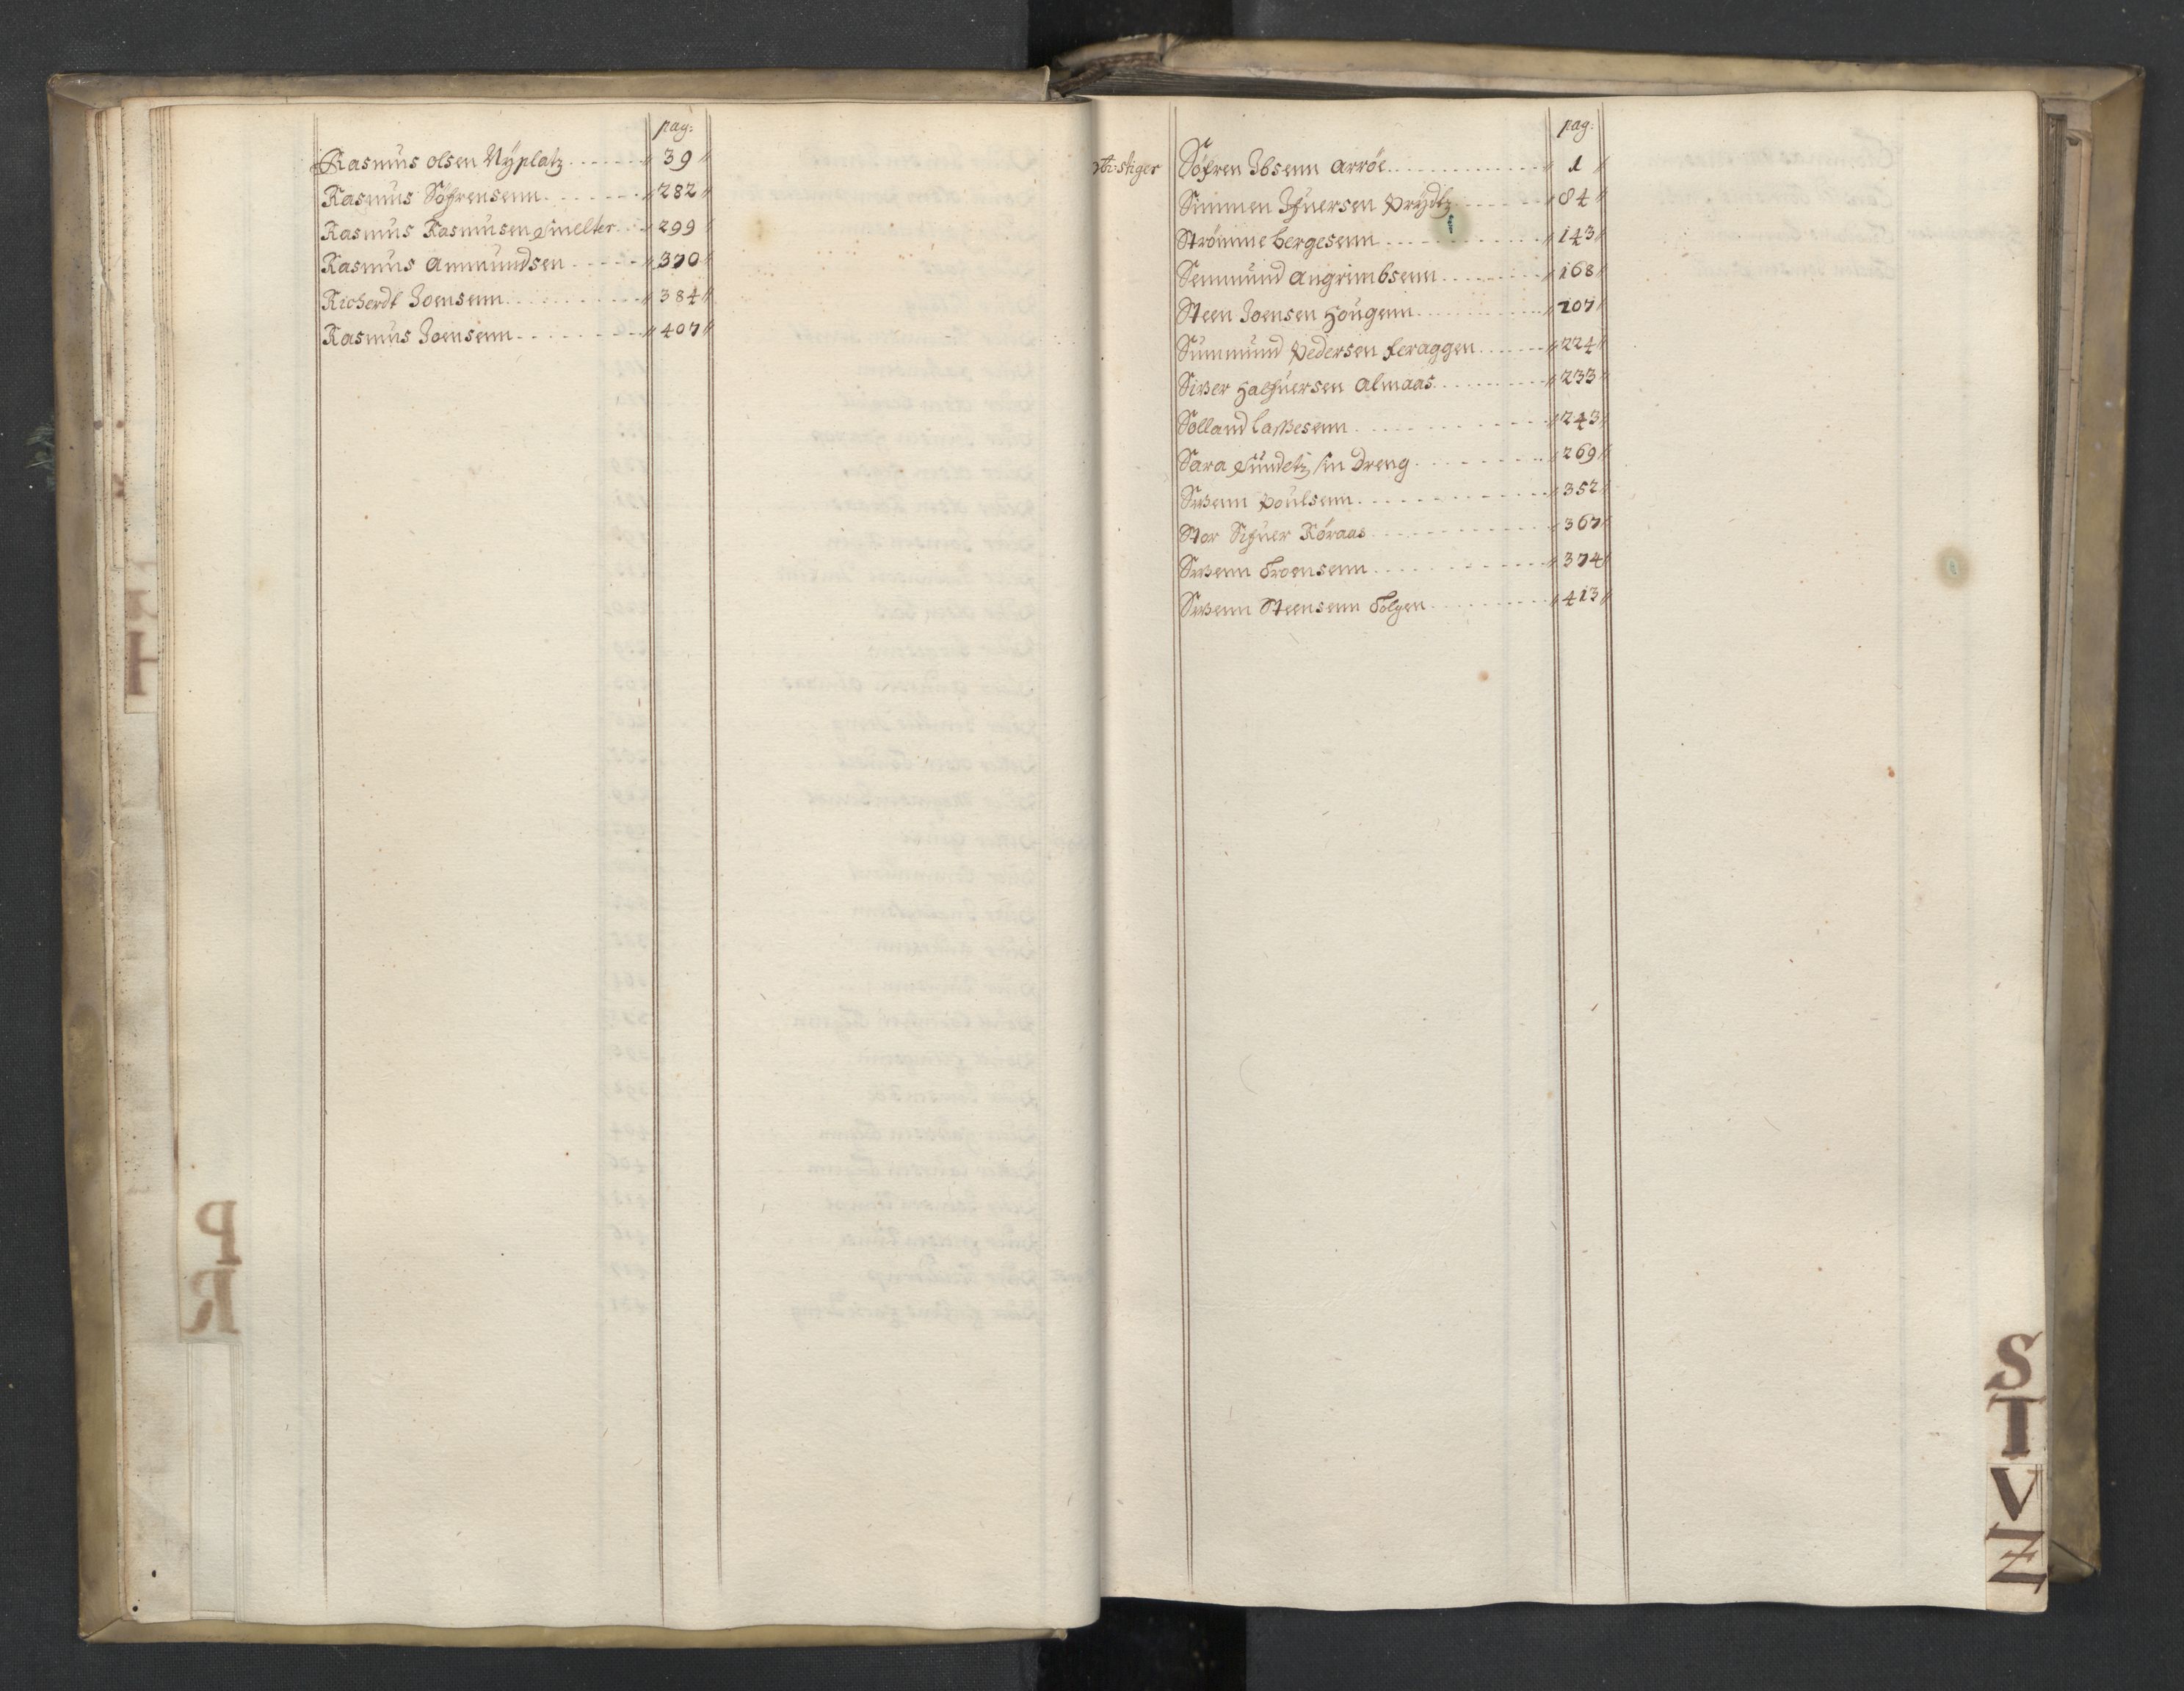 pag:
Rasmus olsen Nÿplatz 39
Rasmus Söfrensenn 282
Rasmus Rasmusen smelter 299
Rasmus Ammundsen 370
Richerdt Joensenn 384
Rasmus Joensenn 407
P
R
pag:
stiger Söfren Ibsenn Arröe 1
Simmen Ifuersen Prydtz 84
Strömme bergesenn 143
Semmund Angrimbsenn 168
Steen Joensen Hougenn 207
Summund Pedersen feraggen 224
Siver Halfuersen Almaas 233
Solland lassesenn 243
Sara sundetz sin Dreng 269
Svenn Poulsenn 352
Stor Sifuer Röraas 367
Svenn Troensenn 374
Svenn Steensenn Tolgen 413
S
T
V
Z